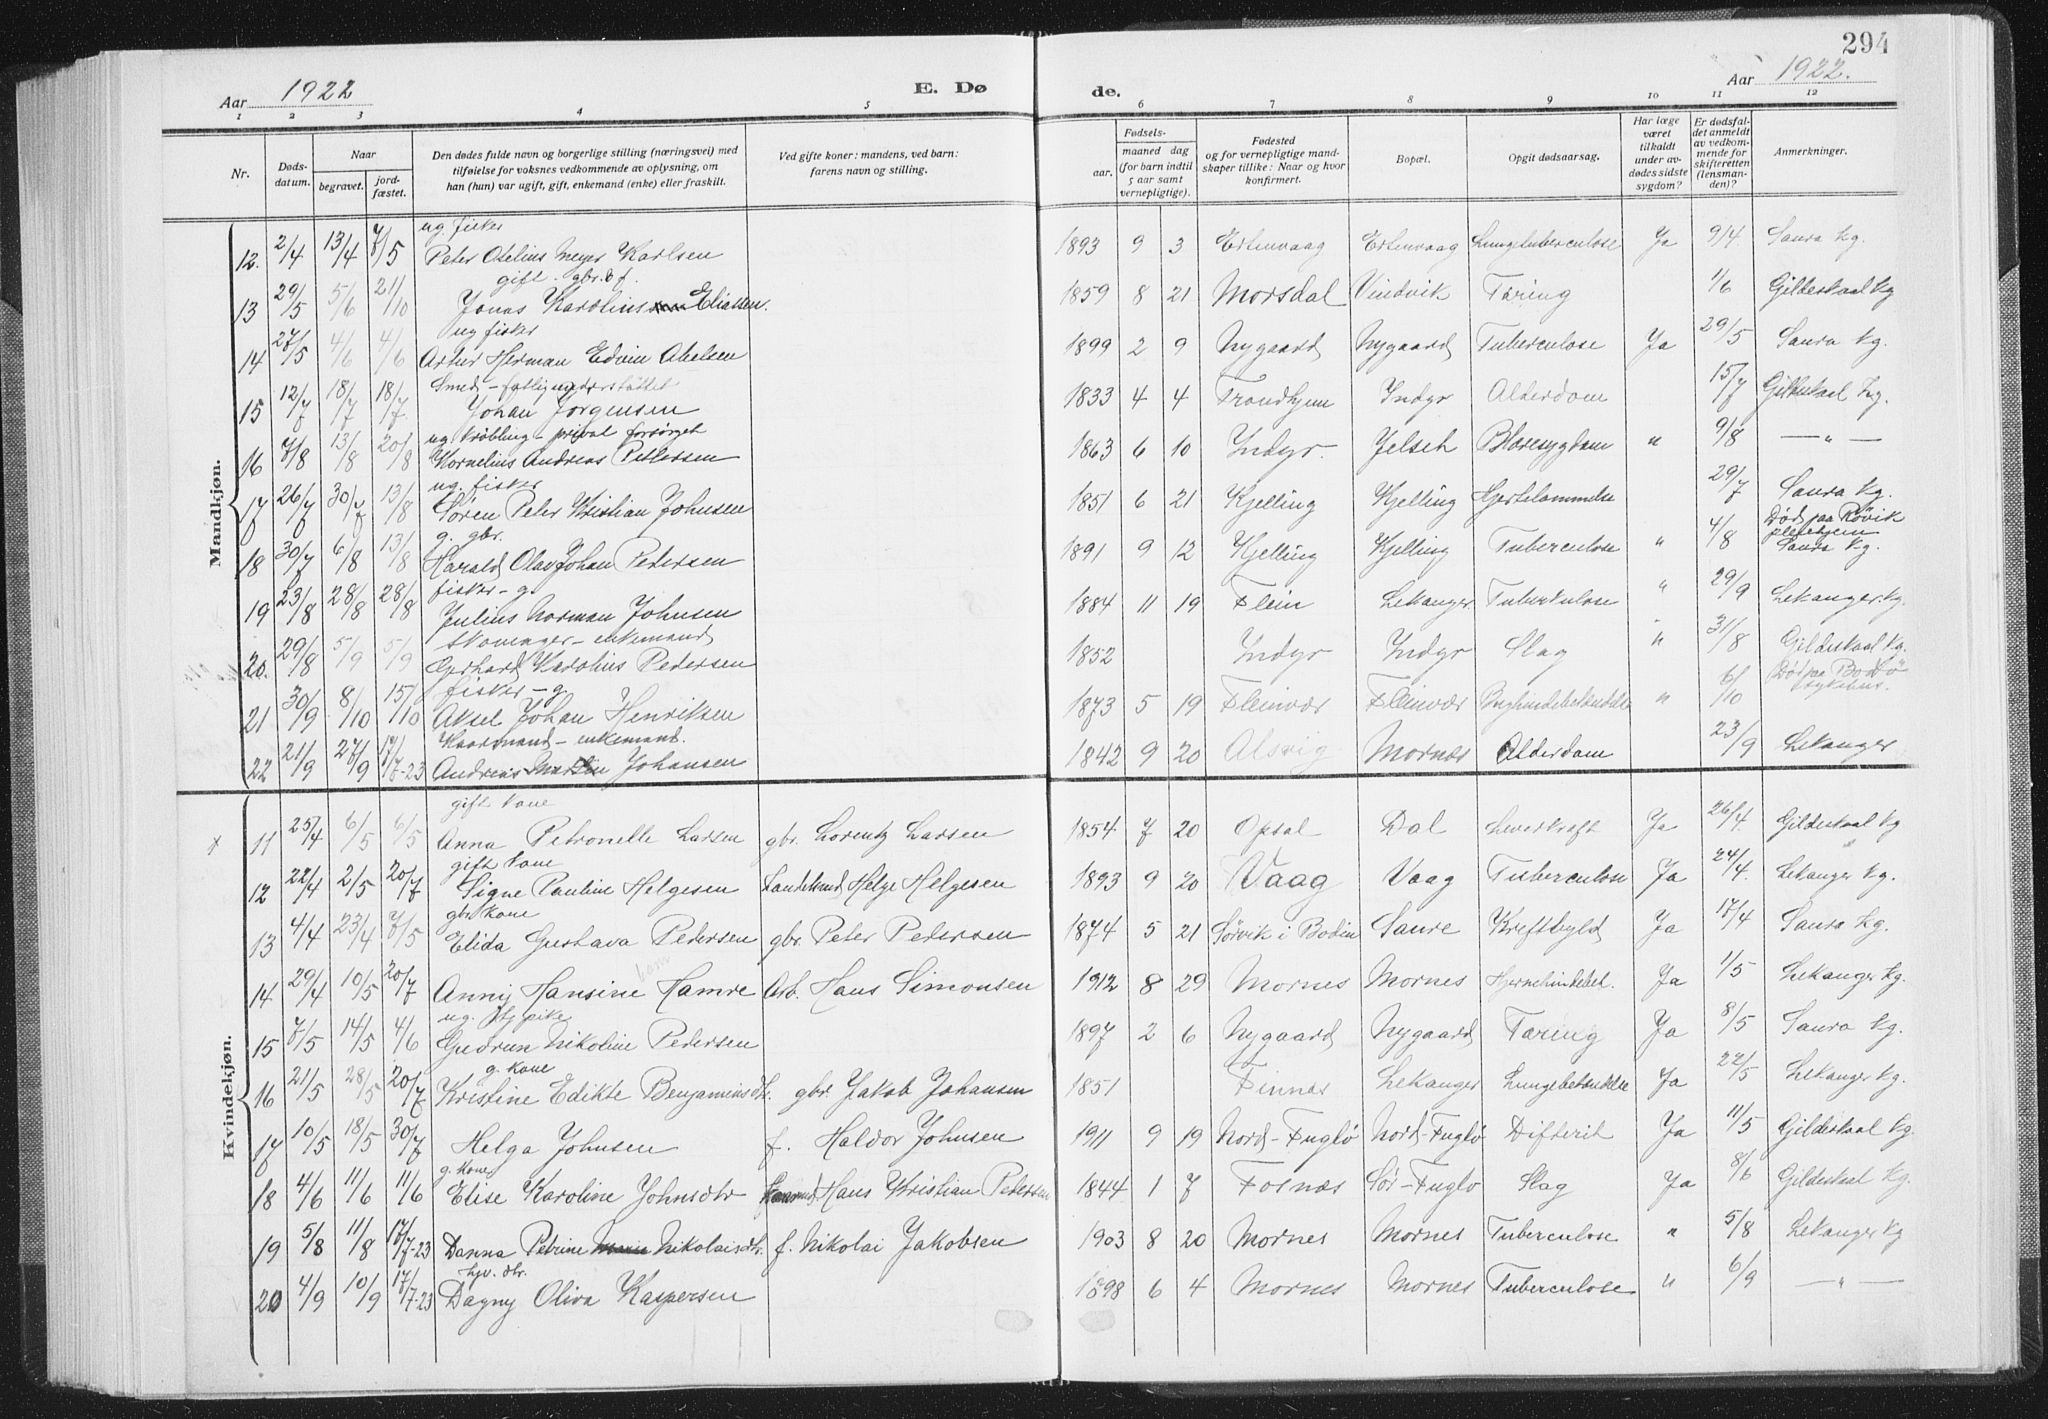 294
Aar 1922 E. Dø de. Aar 1922.
1 2 3 4 5 6 7 8 9 10 11 12
Nr. Døds-datum. Naar begravet. jord-fæstet. Den dødes fulde navn og borgerlige stilling (næringsvei) med tilføielse for voksnes vedkommende av oplysning, om han (hun) var ugift, gift, enkemand (enke) eller fraskilt. Ved gifte koner: mandens, ved barn: farens navn og stilling. Fødsels- aar. maaned dag (for barn indtil 5 aar samt vernepligtige). Fødested og for vernepligtige mandskaper tillike: Naar og hvor konfirmert. Bopæl. Opgit dødsaarsag. Har læge været tilkaldt under avdødes sidste sygdom? Er dødsfaldet anmeldt av vedkommende for skifteretten (lensmanden)? Anmerkninger.
Mandkjøn.
ug. fisker
12. 2/4 13/4 7/5 Peter Otelius Meyer Karlsen 1893 9 3 Ertenvaag Ertenvaag Lungetuberculose Ja 9/4. Saura kg.
gift. gbr. & f.
13 29/5 5/6 21/10 Jonas Karolius Eliassen. 1859 8 21 Morsdal Vindvik Tæring 1/6 Gildeskaal kg
ug fisker
14 27/5 4/6 4/6 Artur Herman Edvin Abelsen 1899 2 9 Nygaard Nygaard Tuberculose Ja 29/5 Saura kg.
Smed - fattigunderstøttet
15 12/7 18/7 18/7 Johan Jørgensen 1833 4 4 Trondhjem Indyr Alderdom 15/7 Gildeskaal kg.
ug. krøbling - privat forsørget
16 7/8 13/8 20/8 Kornelius Andreas Pettersen 1863 6 10 Indyr. Jelseth Blæresygdom " 9/8 — " —
ug. fisker
17 26/7 30/7 13/8 Søren Peter Kristian Johnsen 1851 6 21 Kjelling Kjelling Hjertelammelse 29/7 Saura kg.
g. gbr. Død paa Røvik pleiehjem
18 30/7 6/8 13/8 Harald Olav Johan Pedersen 1891 9 12 Kjelling Kjelling Tuberculose " 4/8 Saura kg.
fisker - g
19 23/8 28/8 28/8 Julius Norman Johnsen 1884 11 19 Flein Lekanger Tuberkulose " 29/9 Lekanger kg.
Skomager - enkemand
20. 29/8 5/9 5/9 Gerhard Karolius Pedersen 1852 Indyr Indyr Slag " 31/8 Gildeskaal kg.
fisker - g
21 30/9 8/10 15/10 Aksel Johan Henriksen 1873 5 19 Fleinvær Fleinvær Bughindebetændelse " 6/10 Død paa Bodø sykehus.
Kaarmand - enkemand.
22 21/9 27/9 17/7-23 Andreas Martin Johansen 1842 9 20 Alsvig Mornes Alderdom 23/9 Lekanger
Kvindekjøn.
gift kone
x 11 25/4 6/5 6/5 Anna Petronelle Larsen gbr. Lorentz Larsen 1854 7 20 Opsal Dal Leverkræft Ja 26/4. Gildeskaal kg
gift kone
12 22/4 2/5 20/7 Signe Pauline Helgesen Landeknd Helge Helgesen 1893 9 20 Vaag Vaag Tuberculose Ja 24/4. Lekanger kg.
gbr kone
13 4/4 23/4 7/5 Elida Gustava Pedersen gbr. Peter Pedersen 1874 5 21 Sørvik i Bodin Saure Kreftbyld Ja 17/4 Saura kg.
barn
14 29/4 10/5 20/7 Anny Hansine Hamre Arb. Hans Simonsen 1912 8 29 Mornes Mornes Hjernehindebet. Ja 1/5 Lekanger kg.
ug. tj pike
15 7/5 14/5 4/6 Gudrun Nikoline Pedersen 1897 2 6 Nygaard Nygaard Tæring Ja 8/5 Saura kg.
g. kone
16 21/5 28/5 20/7 Kristine Edikte Benjaminsdtr. gbr. Jakob Johansen 1851 Finnes Lekanger Lungebetændelse Ja 22/5 Lekanger kg.
17 10/5 18/5 30/7 Helga Johnsen f. Haldor Johnsen 1911 9 19 Nord-Fuglø Nord-Fuglø Difterit Ja 11/5 Gildeskaal kg.
g. kone
18 4/6 11/6 11/6 Elise Karoline Johnsdtr Kaarmd Hans Kristian Petersen 1844 1 7 Fosnæs Sør-Fuglø Slag Ja 8/6 Gildeskaal kg.
19 5/8 11/8 17/7-23 Danna Petrine Marie Nikolaisdtr. f. Nikolai Jakobsen 1903 8 20 Mornes Mornes Tuberculose " 5/8 Lekanger kg
hjv. dtr.
20 4/9 10/9 17/7-23 Dagny Oliva Kaspersen 1898 6 4 Mornes Mornes Tuberculose " 6/9 — " —